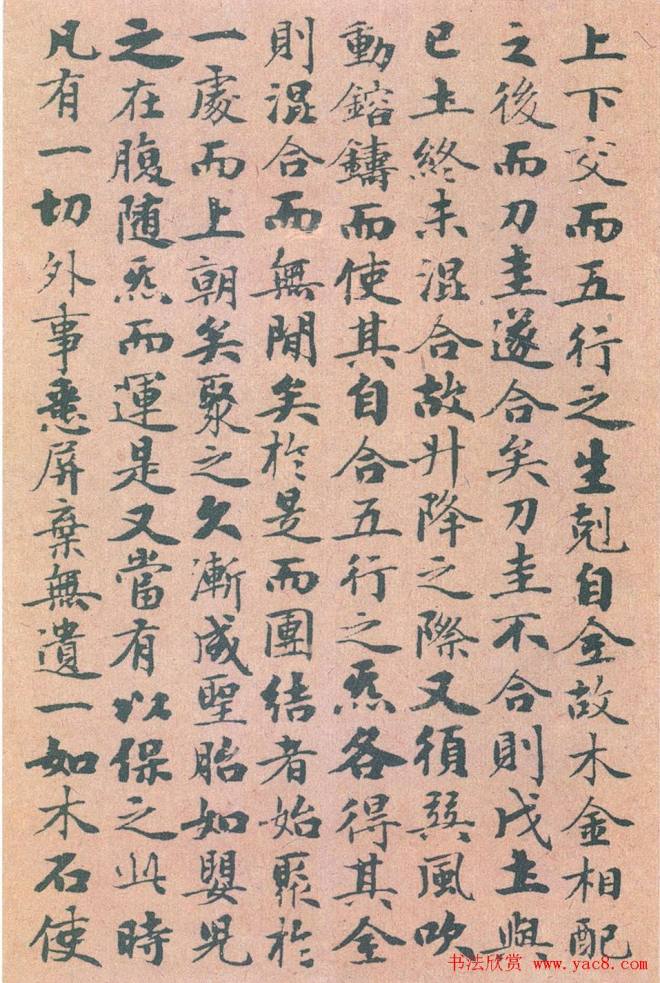 上下交而五行之生剋自全故木金相配
之後而刀圭遂合矣刀圭不合則戊土與
已土終未混合故升降之際又須巽風吹
動鎔鑄而使其自合五行之炁各得其全
則混合而無間矣於是而團結者始聚於
一處而上朝矣聚之久漸成聖胎如嬰兒
之在腹随炁而運是又當有以保之此時
凡有一切外事悉屏棄無遺一如木石使
书法欣赏 www.yac8.com